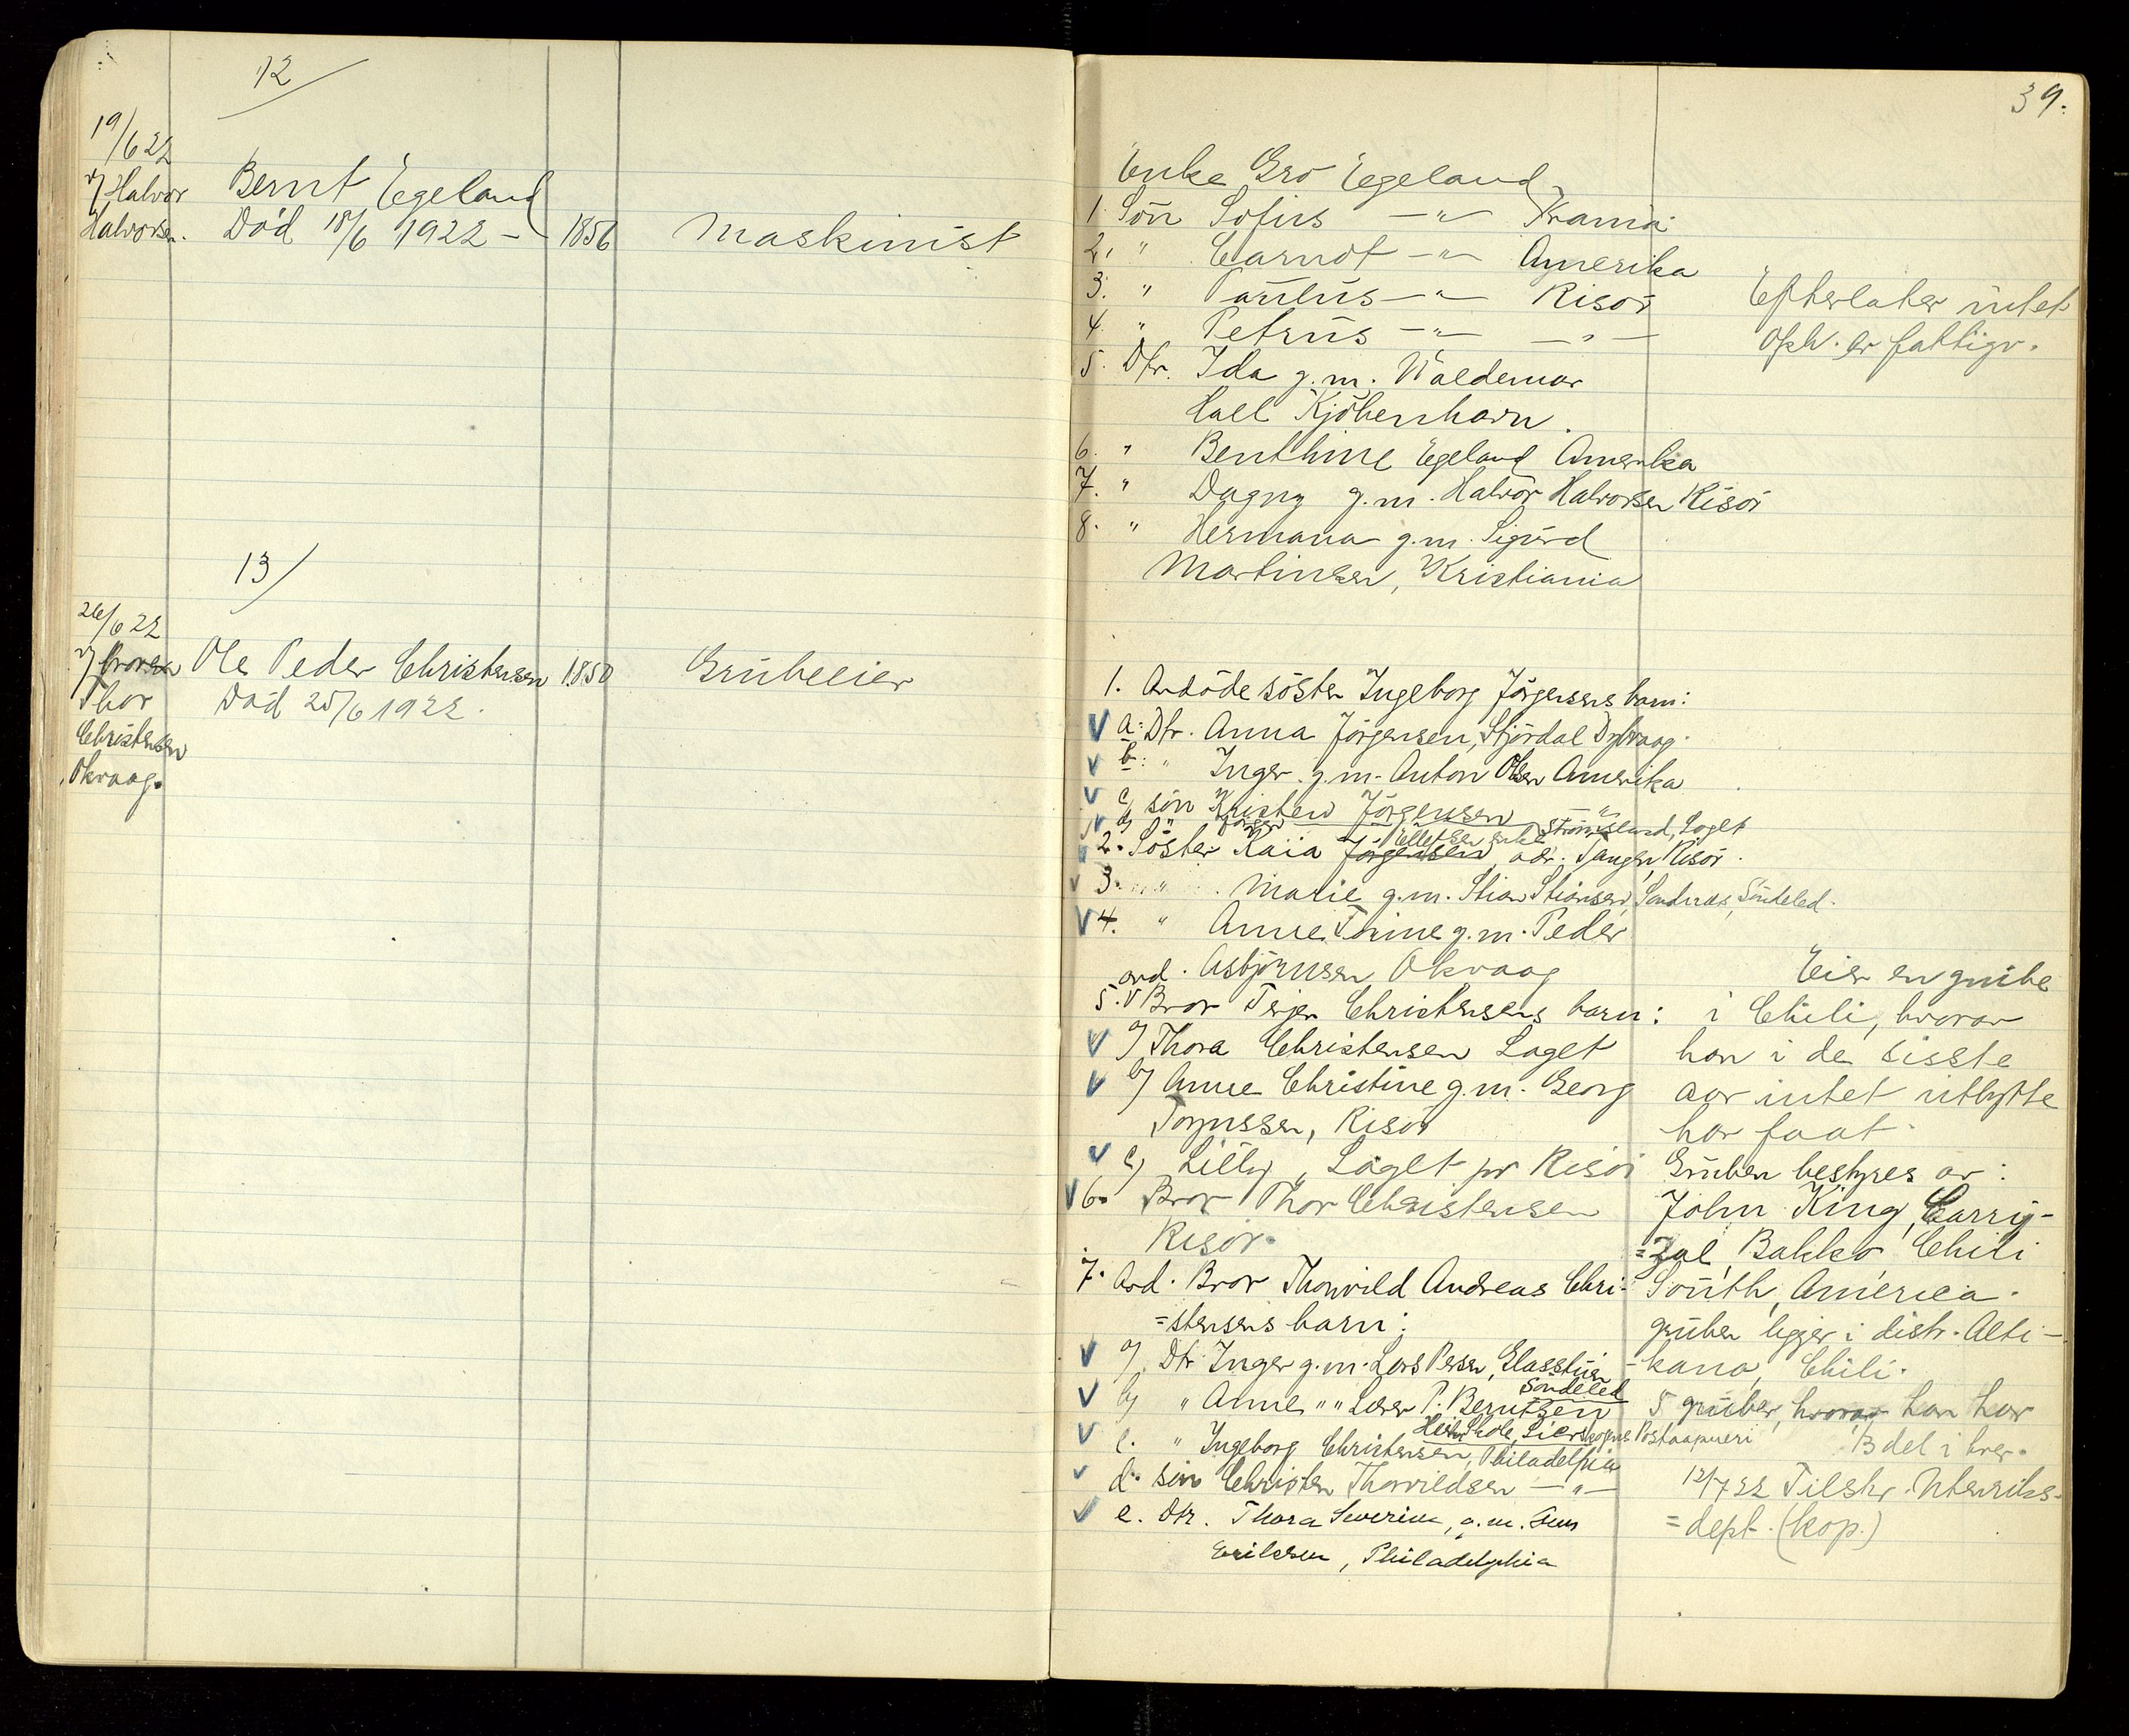 12
19/6 22
v/ Halvor
Halvorsen.
Bernt Egeland
Död 18/6 1922 -
1856
Maskinist
13/
26/6 22
v/ broren
Thor
Christensen
Okvaag.
Ole Peder Christensen
Död 25/6 1922.
1850
Grubeeier
39.
Enke Gro Egeland
1. Sön Sofus —"— Krania
2. " Carnot —"— Amerika
3. " Paulus —"— Risör
4. " Petrus —"— —"—
5. Dtr. Ida g.m. Waldemar
Hall Kjöbenhavn.
6. " Benthine Egeland Amerika
7. " Dagny g.m. Halvor Halvorsen Risör
8. " Hermana g.m. Sigurd
Martinsen, Kristiania
Efterlater intet
Oph. er fattigv.
1. Avdöde söster Ingeborg Jörgensens barn:
a: Dtr. Anna Jörgensen, Stjördal Dybvaag.
b: " Inger g.m. Anton Olsen Amerika
c, sön Kristen Jörgensen —"—
d, " Jörgen Strömsland, Laget
2. Söster Kaia Jörgensen Ellefsen enke adr. Tangen, Risör.
3. " Marie g.m. Stian Stiansen, Sandnes, Söndeled.
4. " Anne Trine g.m. Peder
Asbjörnsen, Okvaag
5. avd. Bror Terjer Christensens barn:
a/ Thora Christensen Laget
b/ Anne Christine g.m. Georg
Torjussen, Risör
c, Lilly, Laget pr Risör
6. Bror Thor Christensen
Risör.
7. Avd. Bror Thorvild Andreas Chri-
=stensens barn:
a/. Dtr Inger g.m. Lars Persen, Glasstuen
Söndeled
b, " Anne " " Lærer P. Berntsen
Heia Skole, Lierskogens Postaapneri
c. " Ingeborg Christensen, Philadelphia
d. sön Christen Thorvildsen —"—
e. Dtr. Thora Severine, g.m. Sven
Eriksen, Philadelphia
Eier en grube
i Chili, hvorav
han i de sisste
aar intet utbytte
har faat.
Gruben bestyres av:
John King, Carrij-
=zal, Bakko Chili
South, America.
gruben ligger i distr. Alti-
-kana, Chili.
5 gruber, hvorav han har
1/3 del i hver.
12/7 22 Tilskr. Utenriks-
=dept. (kop.)